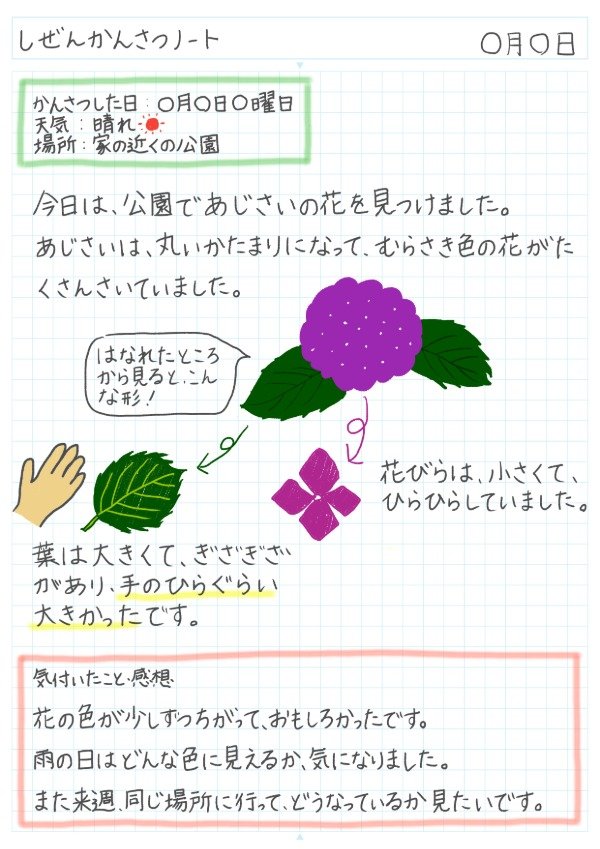 しぜんかんさつノート
〇月〇日
かんさつした日：〇月〇日〇曜日
天気：晴れ
場所：家の近くの公園
今日は、公園であじさいの花を見つけました。
あじさいは、丸いかたまりになって、むらさき色の花がた
くさんさいていました。
はなれたところ
から見ると、こん
な形！
花びらは、小さくて、
ひらひらしていました。
葉は大きくて、ぎざぎざ
があり、手のひらぐらい
大きかったです。
気付いたこと・感想
花の色が少しずつちがって、おもしろかったです。
雨の日はどんな色に見えるか、気になりました。
また来週、同じ場所に行って、どうなっているか見たいです。